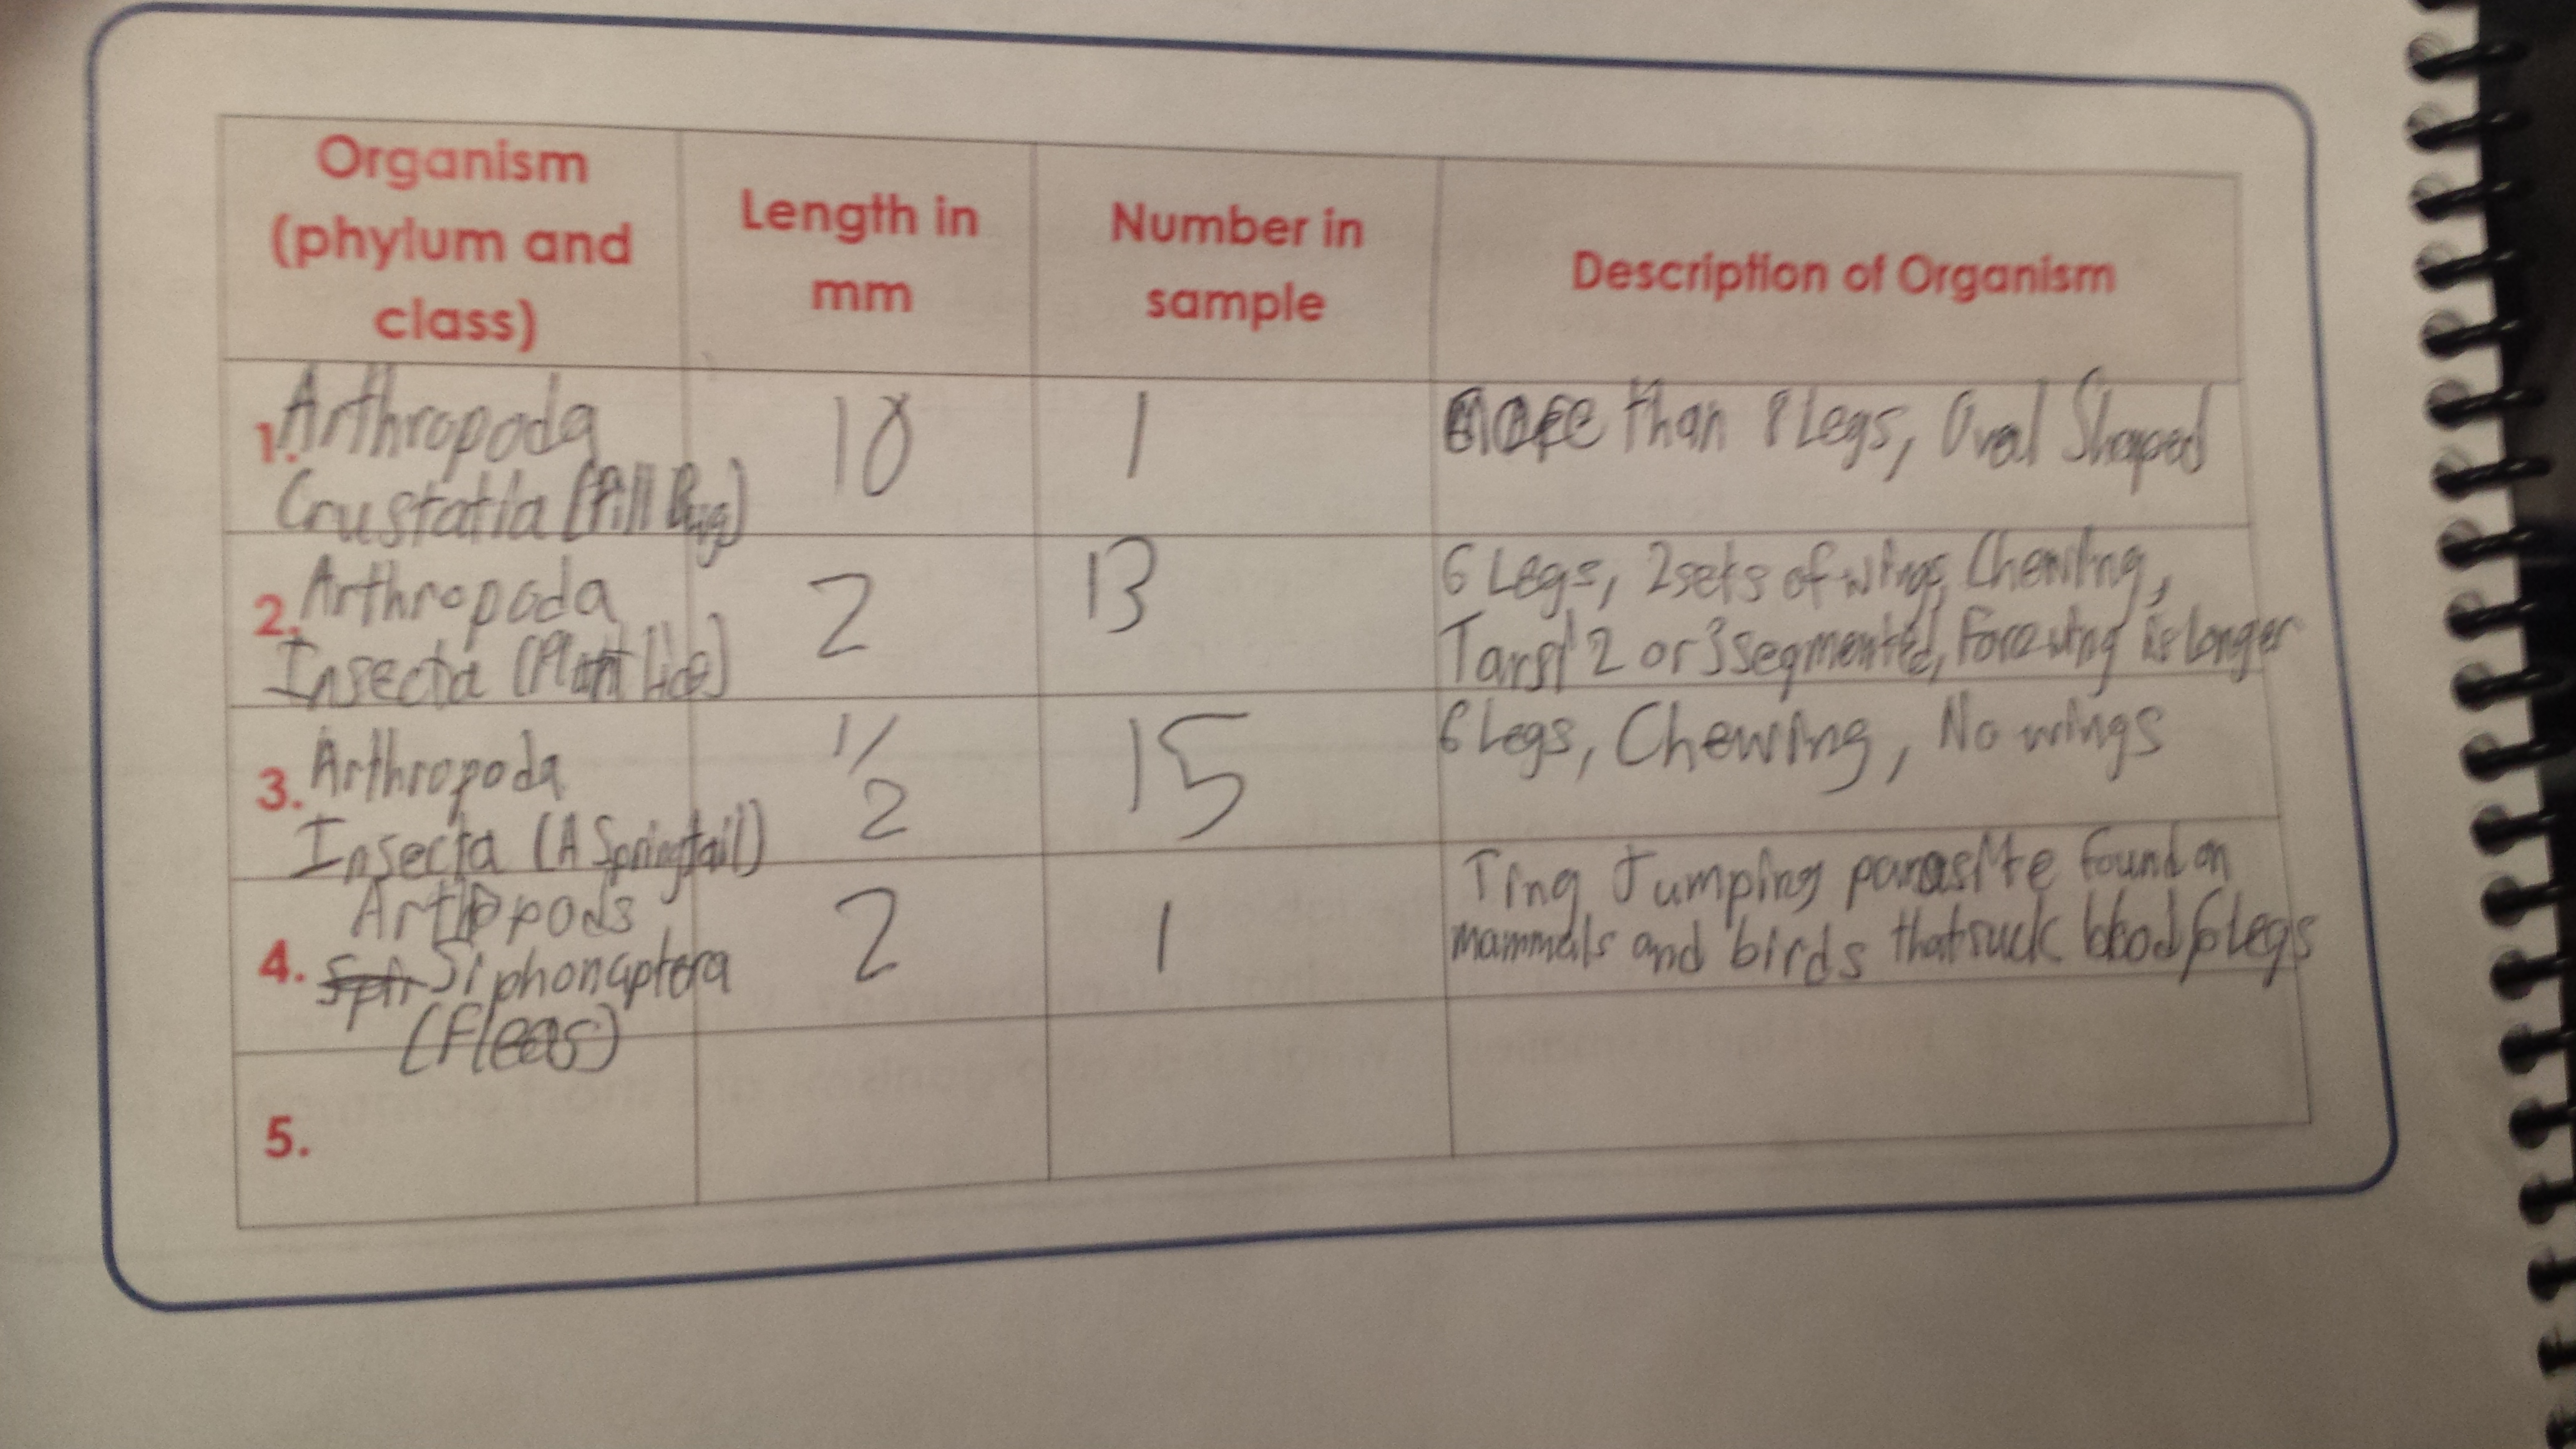 Organism
(phylum and
class)
Length in
mm
Number in
sample
Description of Organism
1. Arthropoda
Crustatia (Pill Bug)
10
1
more than 8 Legs, Oval Shaped
2. Arthropoda
Insecta (Plant lice)
2
13
6 Legs, 2 sets of wings, Chewing,
Tarsi 2 or 3 segmented, Forewing is longer
3. Arthropoda
Insecta (A Springtail)
1/2
15
6 Legs, Chewing, No wings
4. Arthopods
Siphonaptera
(Fleas)
2
1
Ting Jumping parasite found on
mammals and birds that suck blood, 6 legs
5.